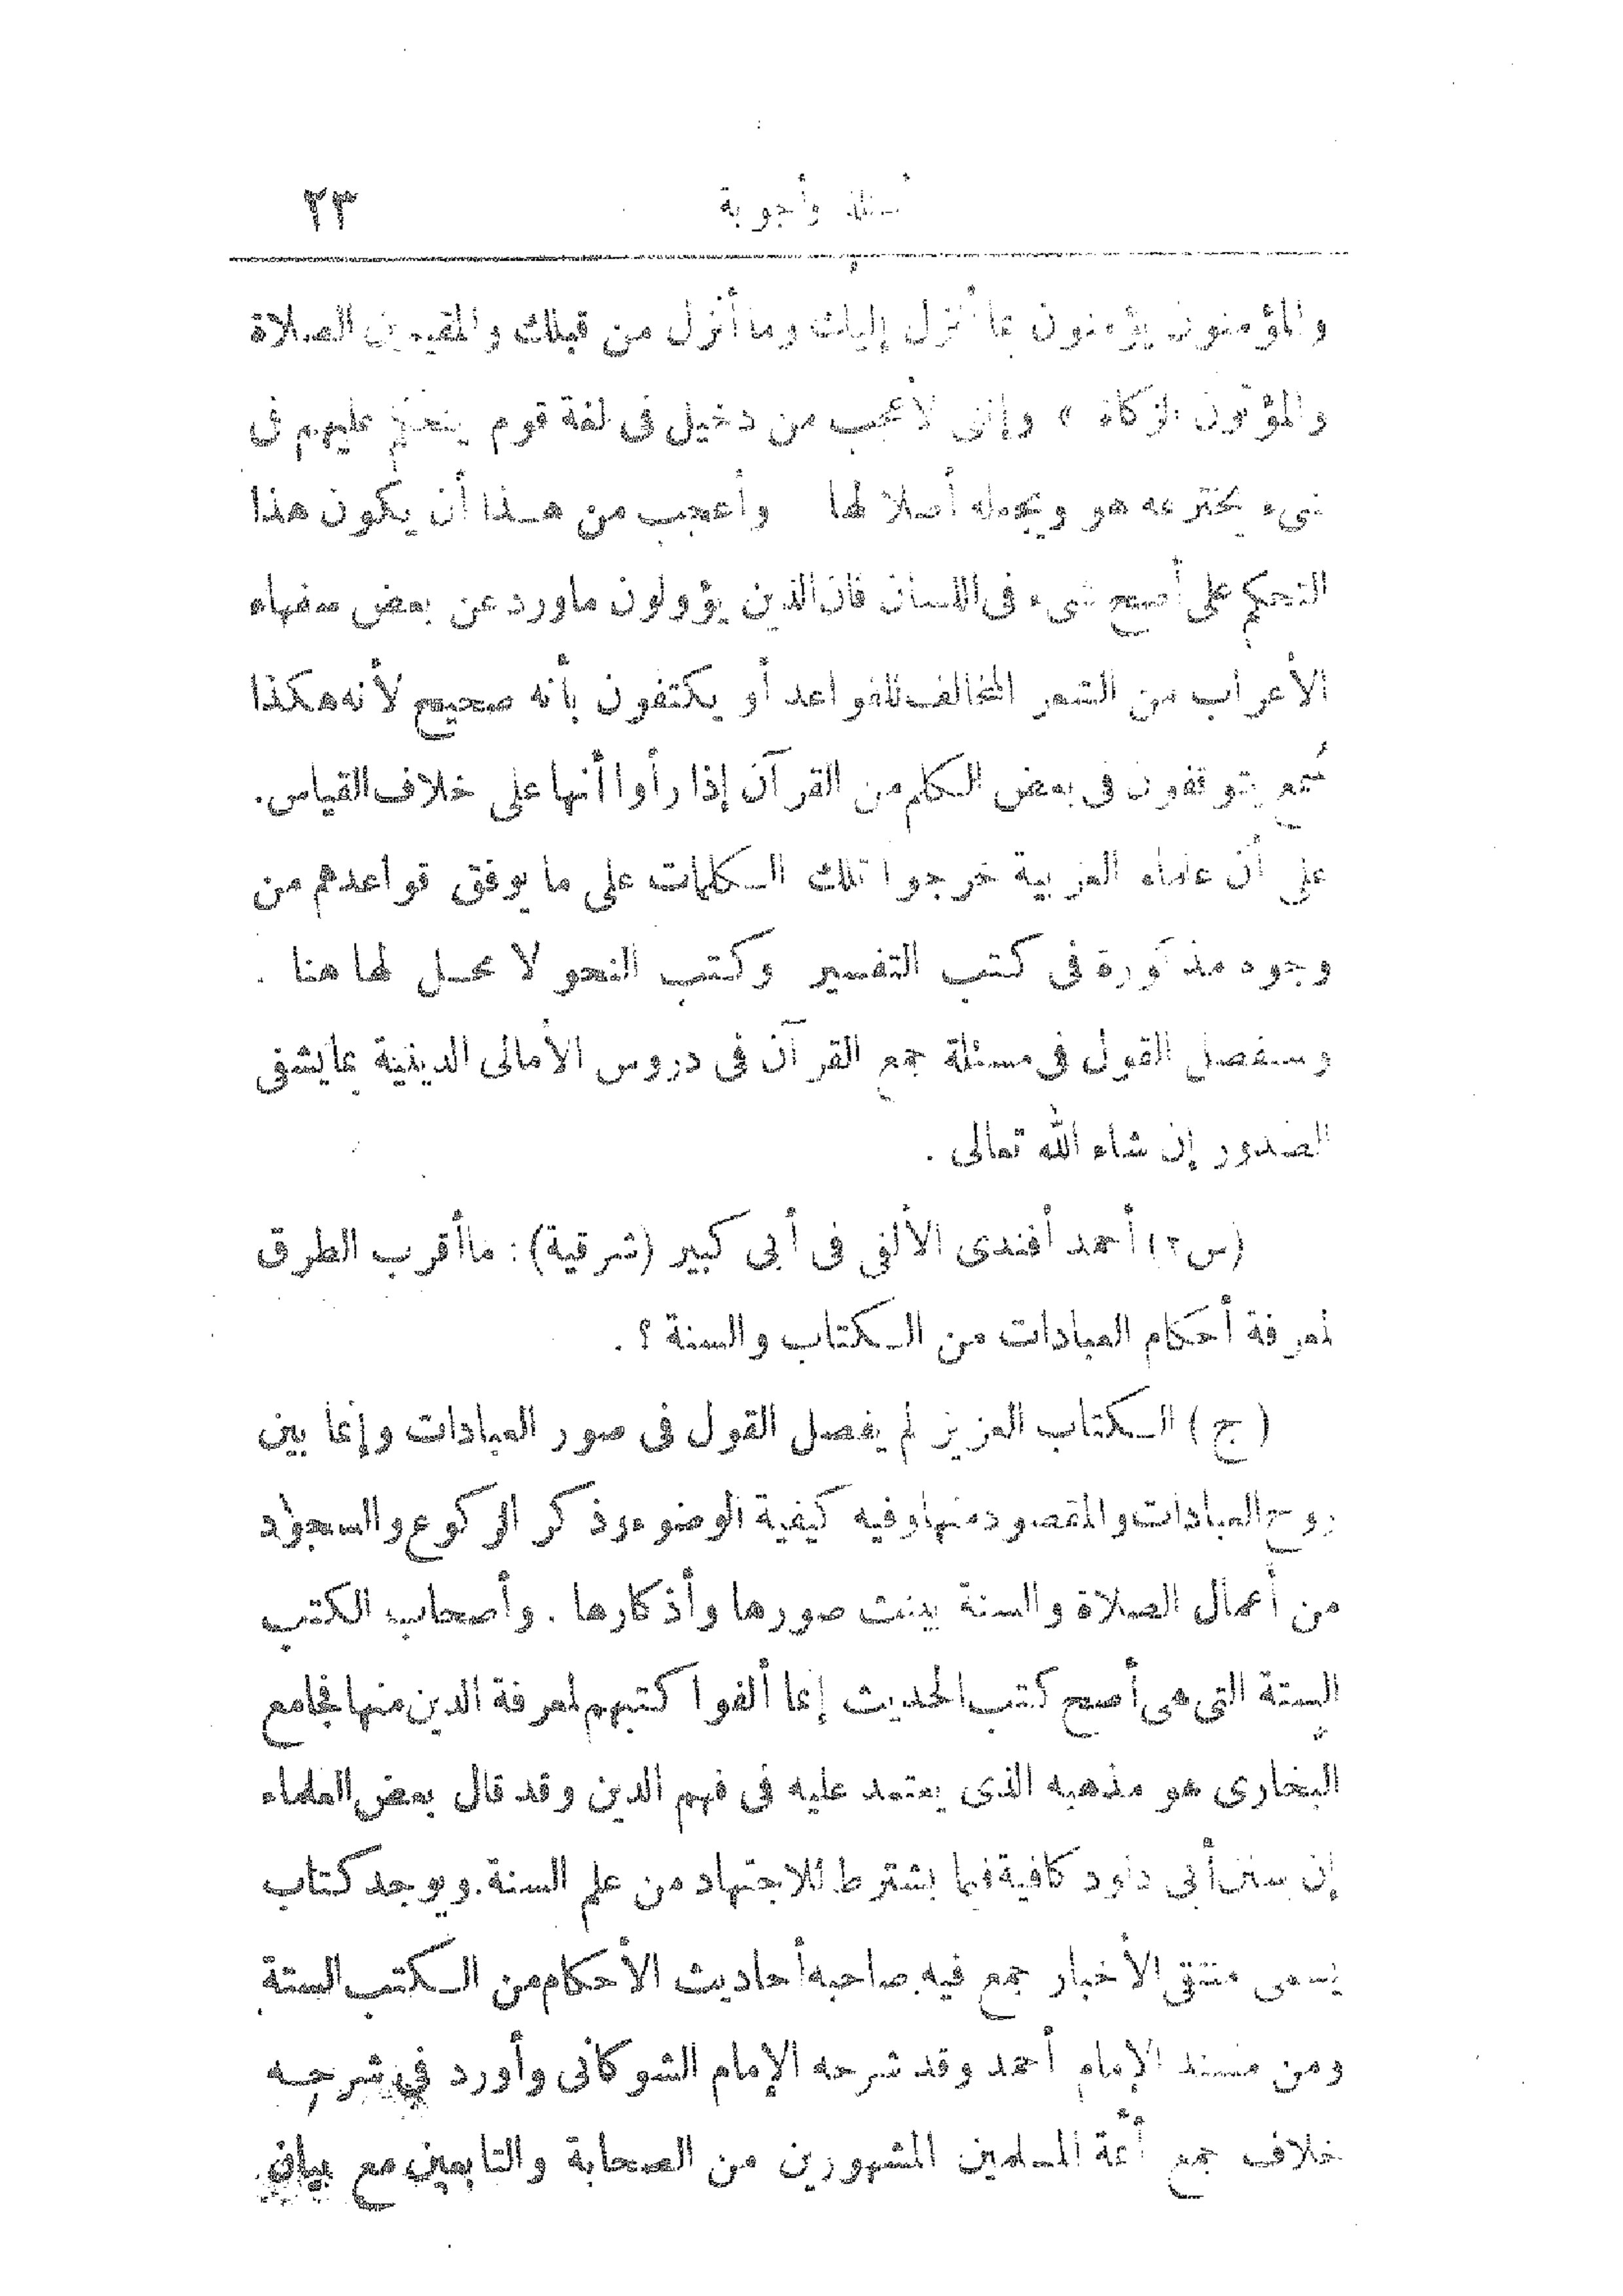 أسئلة وأجوبة ٢٣
والمؤمنون يؤمنون بما أنزل إليك وما أنزل من قبلك والمقيمين الصلاة
والمؤتون الزكاة » وإنى لأعجب من دخيل فى لغة قوم يتحكم عليهم فى
شىء يخترعه هو ويجعله أصلا لها وأعجب من هـذا أن يكون هذا
التحكم على أصح شىء فى اللسان فان الذين يؤولون ما ورد عن بعض سفهاء
الأعراب من الشعر المخالف للقواعد أو يكتفون بأنه صحيح لأنه هكذا
سُمع يتوقفون فى بعض الكلم من القرآن إذا رأوا أنها على خلاف القياس.
على أن علماء العربية خرجوا تلك الكلمات على ما يوفق قواعدهم من
وجوه مذكورة فى كتب التفسير وكتب النحو لا محـل لها هنا .
وسنفصل القول فى مسئلة جمع القرآن فى دروس الأمالى الدينية بما يشفى
الصدور إن شاء الله تعالى .
(س٢) أحمد أفندى الألفى فى أبى كبير (شرقية): ما أقرب الطرق
لمعرفة أحكام العبادات من الكتاب والسنة ؟ .
(ج) الكتاب العزيز لم يفصل القول فى صور العبادات وإنما بين
روح العبادات والمقصود منها وفيه كيفية الوضوء وذكر الركوع والسجود
من أعمال الصلاة والسنة بينت صورها وأذكارها . وأصحاب الكتب
الستة التى هى أصح كتب الحديث إنما ألفوا كتبهم لمعرفة الدين منها فجامع
البخارى هو مذهبه الذى يعتمد عليه فى فهم الدين وقد قال بعض العلماء
إن سنن أبى داود كافية فيما يشترط للاجتهاد من علم السنة. ويوجد كتاب
يسمى منتقى الأخبار جمع فيه صاحبه أحاديث الأحكام من الكتب الستة
ومن مسند الإمام أحمد وقد شرحه الإمام الشوكانى وأورد فى شرحـه
خلاف جمع أئمة المسلمين المشهورين من الصحابة والتابعين مع بيان